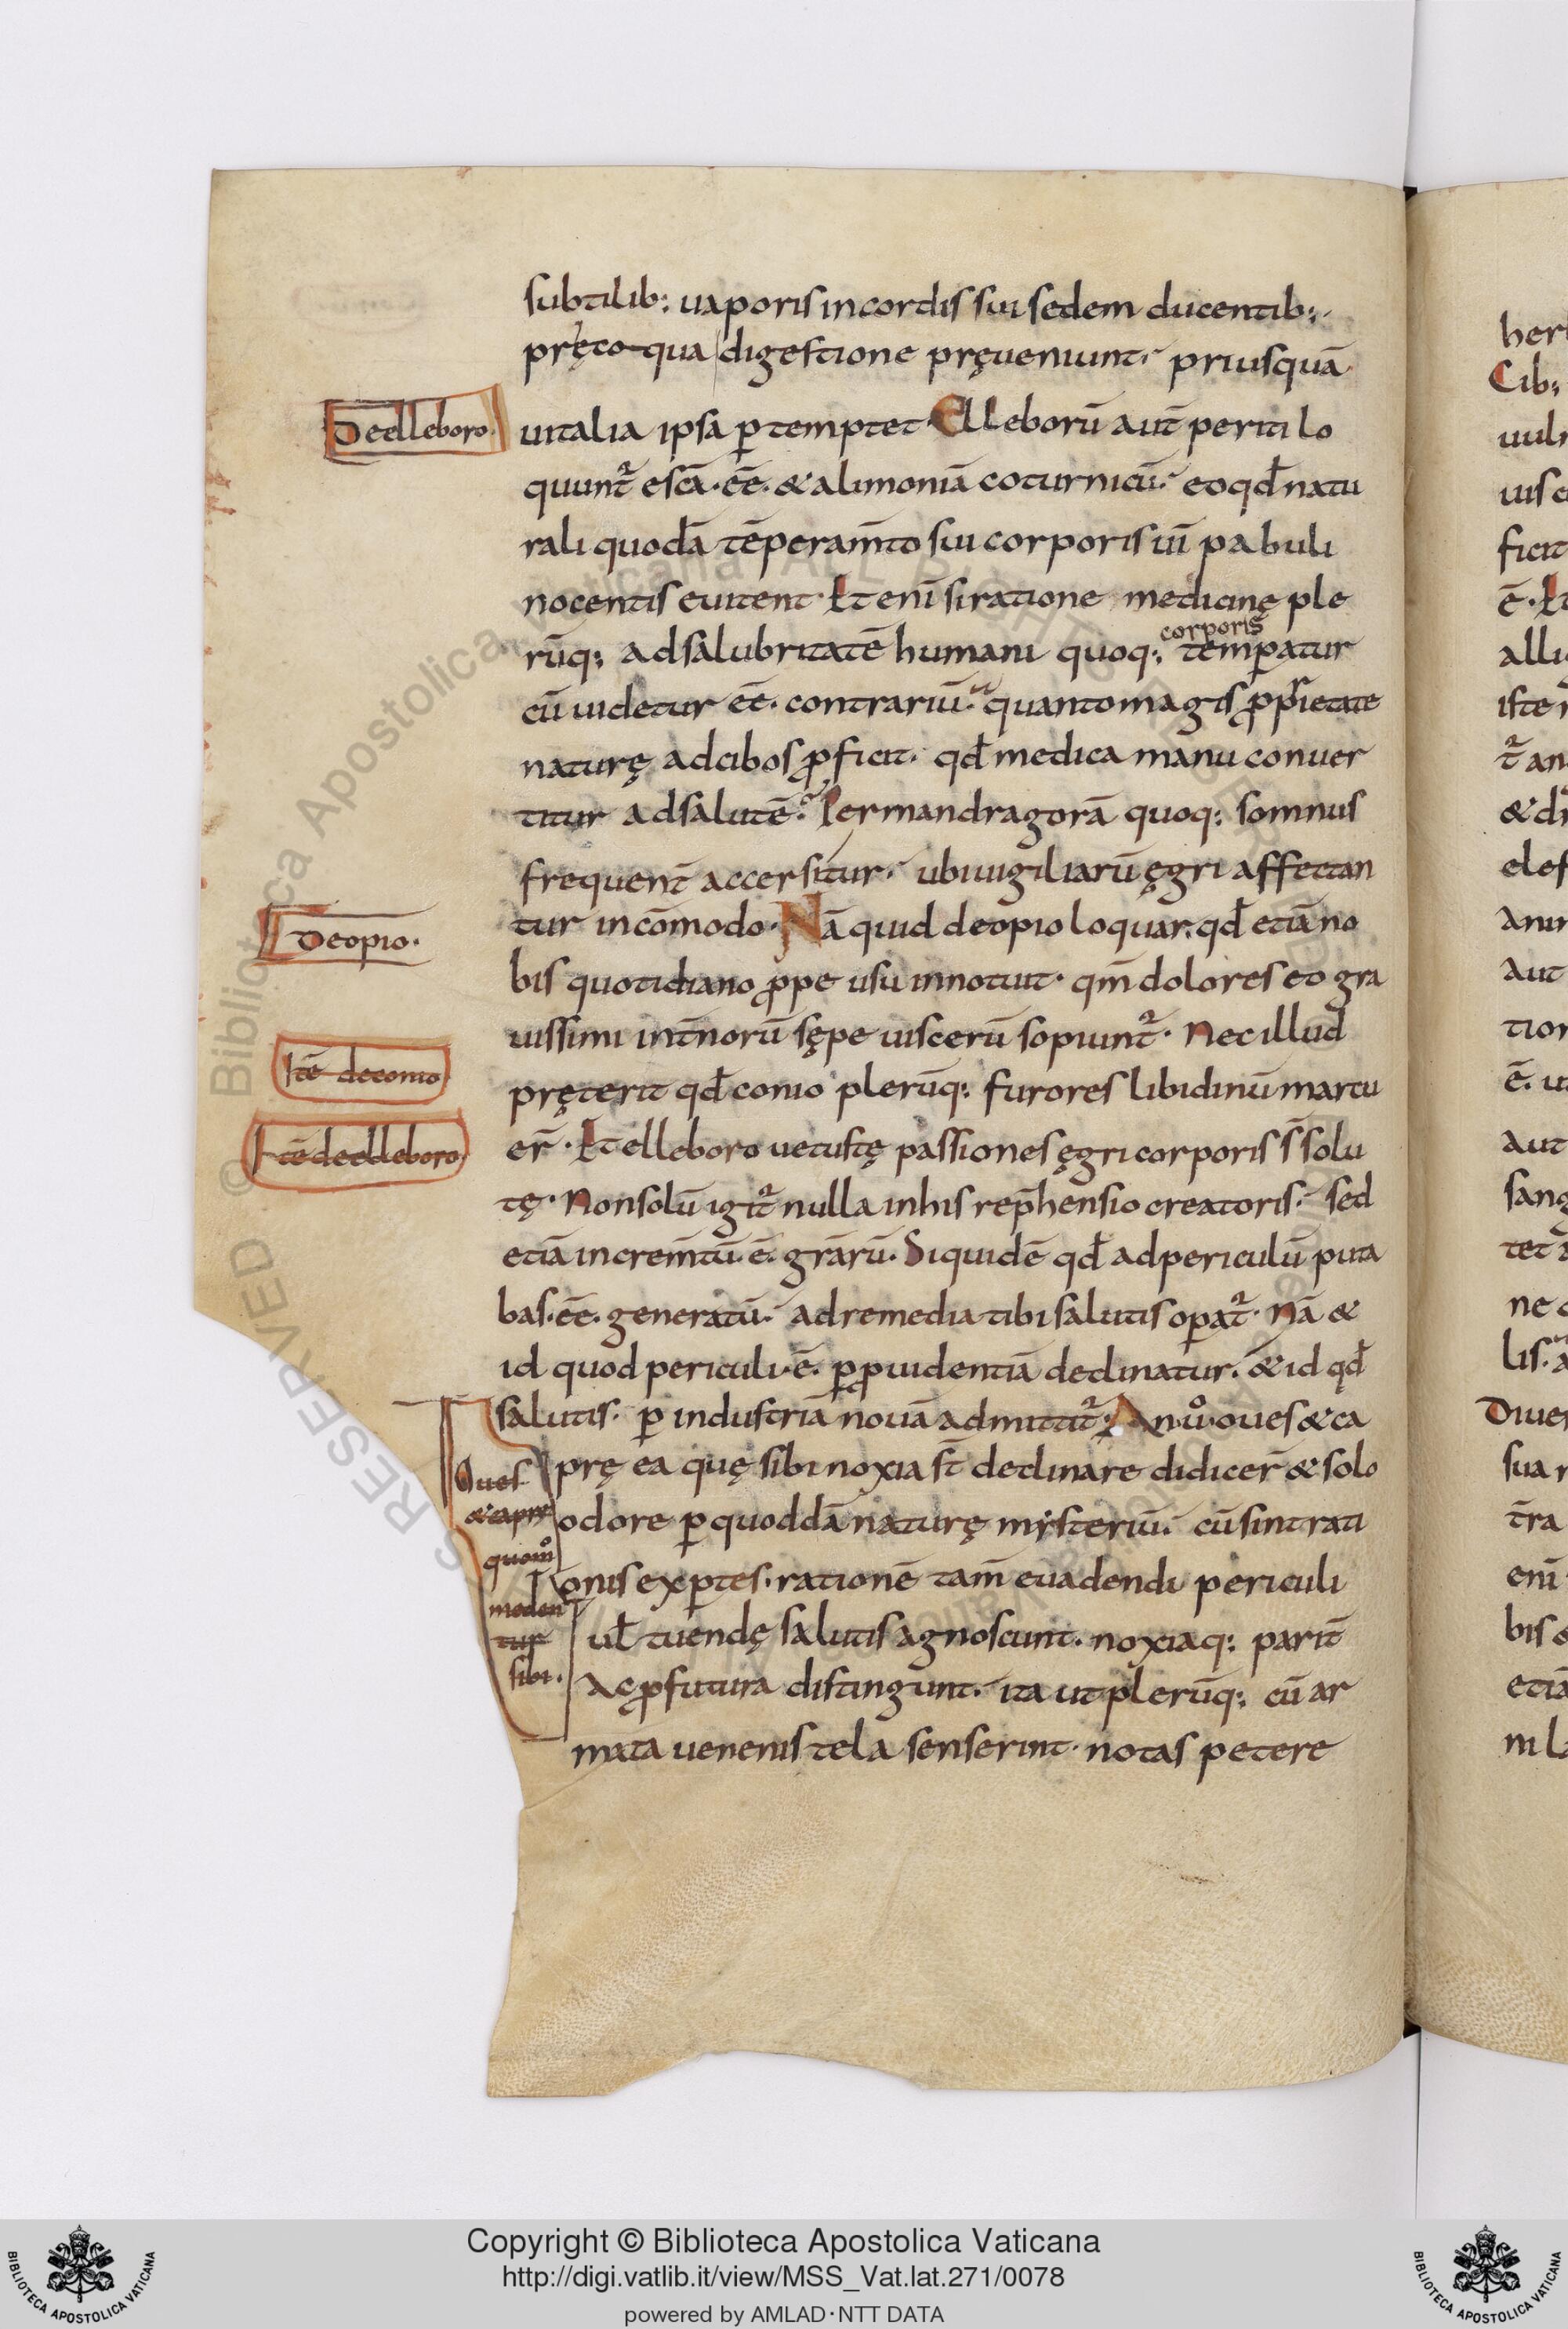 subtilib; uaporis in cordis sui sedem ducentib;
pręcoqua digestione pręueniunt. priusquā
De elleboro.
uitalia ipsa ꝑtemptet. Elleborū aut̄ periti lo
quunt᷑ escā. ēē. & alimoniā coturnicū. eo qđ natu
rali quodā tēperam̄to sui corporis uī pabuli
nocentis euitent. Et enī si ratione medicinę ple
rūq; ad salubritatē humani quoq; corporis temꝑatur
cū uidetur ēē. contrariū. quanto magis ꝓprietate
naturę ad cibos ꝓficit. qđ medica manu conuer
titur ad salutē. Per mandragorā quoq; somnus
frequent̄ accersitur. ubi uigiliarū ęgri affectan
De opio.
tur incōmodo. Nā quid de opio loquar. qđ etiā no
bis quotidiano ꝓpe usu innotuit. qm̄ dolores eo gra
uissimi int̄norū sępe uiscerū sopiunt᷑. Nec illud
Itē de conio
pręterit qđ conio plerūq; furores libidinū marcu
Itē de elleboro.
er̄. Et elleboro uetustę passiones ęgri corporis s̄ solu
tę. Non solū igit᷑ nulla in his rep̄hensio creatoris. sed
etiā increm̄tū. ē. grārū. Siquidē qđ ad periculū puta
bas. ēē. generatū. ad remedia tibi salutis oꝑat᷑. Nā &
id quod periculi. ē. ꝑ ꝓuidentiā declinatur. & id qđ
salutis. ꝑ industriā nouā admittit᷑. An uͦ. oues & ca
Oues
& caprę
quom̊
meden
tur
sibi.
prę ea quę sibi noxia st̄ declinare didicer̄ & solo
odore ꝑ quoddā naturę mysteriū. cū sint rati
onis exꝑtes. rationē tam̄ euadendi periculi
ul̄ tuendę salutis agnoscunt. noxiaq; parit̄
ac ꝓfutura distingunt. ita ut plerūq; cū ar
mata uenenis tela senserint. notas petere
Copyright © Biblioteca Apostolica Vaticana
http://digi.vatlib.it/view/MSS_Vat.lat.271/0078
powered by AMLAD·NTT DATA
BIBLIOTECA APOSTOLICA VATICANA
BIBLIOTECA APOSTOLICA VATICANA